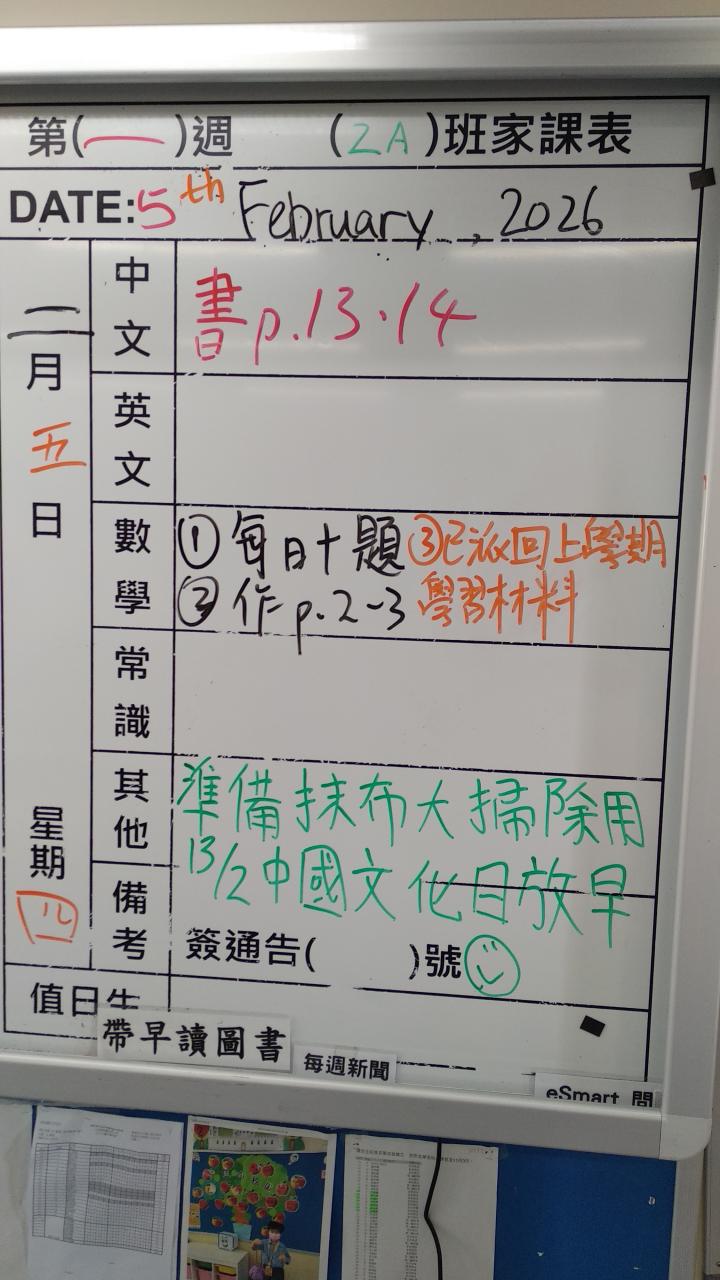 第( )週 (2A)班家課表
DATE:5th February, 2026
二月五日 星期四
中文 書p.13.14
英文
數學 ①每日十題 ③已派回上學期
②作p.2-3 學習材料
常識
其他 準備抹布大掃除用
備考 13/2中國文化日放早
簽通告( )號
值日生
帶早讀圖書
每週新聞
eSmart 問